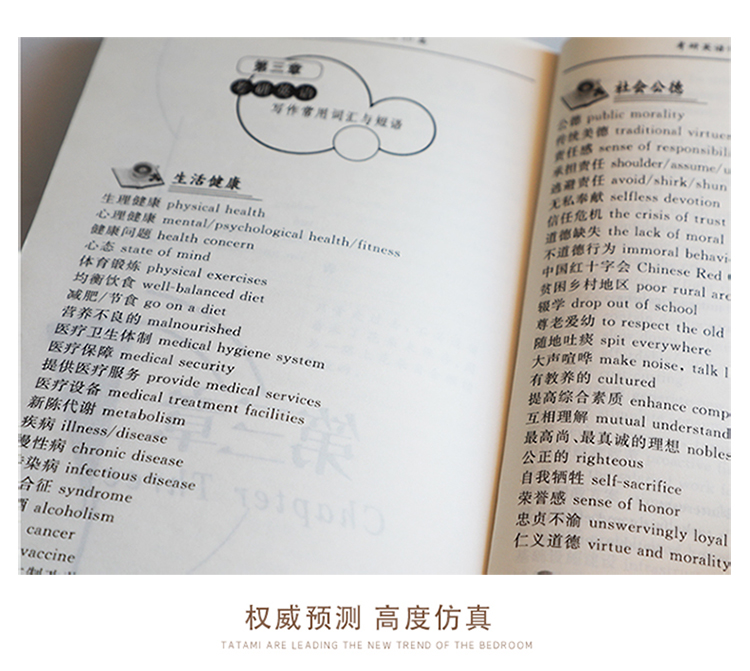 第三章
考研英语
写作常用词汇与短语
生活健康
生理健康 physical health
心理健康 mental/psychological health/fitness
健康问题 health concern
心态 state of mind
体育锻炼 physical exercises
均衡饮食 well-balanced diet
减肥/节食 go on a diet
营养不良的 malnourished
医疗卫生体制 medical hygiene system
医疗保障 medical security
提供医疗服务 provide medical services
医疗设备 medical treatment facilities
新陈代谢 metabolism
疾病 illness/disease
慢性病 chronic disease
染病 infectious disease
合征 syndrome
alcoholism
cancer
vaccine
第三章
Chapter Three
考研英语
社会公德
公德 public morality
传统美德 traditional virtues
责任感 sense of responsibil
承担责任 shoulder/assume/u
逃避责任 avoid/shirk/shun
无私奉献 selfless devotion
信任危机 the crisis of trust
道德缺失 the lack of moral
不道德行为 immoral behavi
中国红十字会 Chinese Red
贫困乡村地区 poor rural are
辍学 drop out of school
尊老爱幼 to respect the old
随地吐痰 spit everywhere
大声喧哗 make noise, talk l
有教养的 cultured
提高综合素质 enhance comp
互相理解 mutual understand
最高尚、最真诚的理想 nobles
公正的 righteous
自我牺牲 self-sacrifice
荣誉感 sense of honor
忠贞不渝 unswervingly loyal
仁义道德 virtue and morality
权威预测 高度仿真
TATAMI ARE LEADING THE NEW TREND OF THE BEDROOM